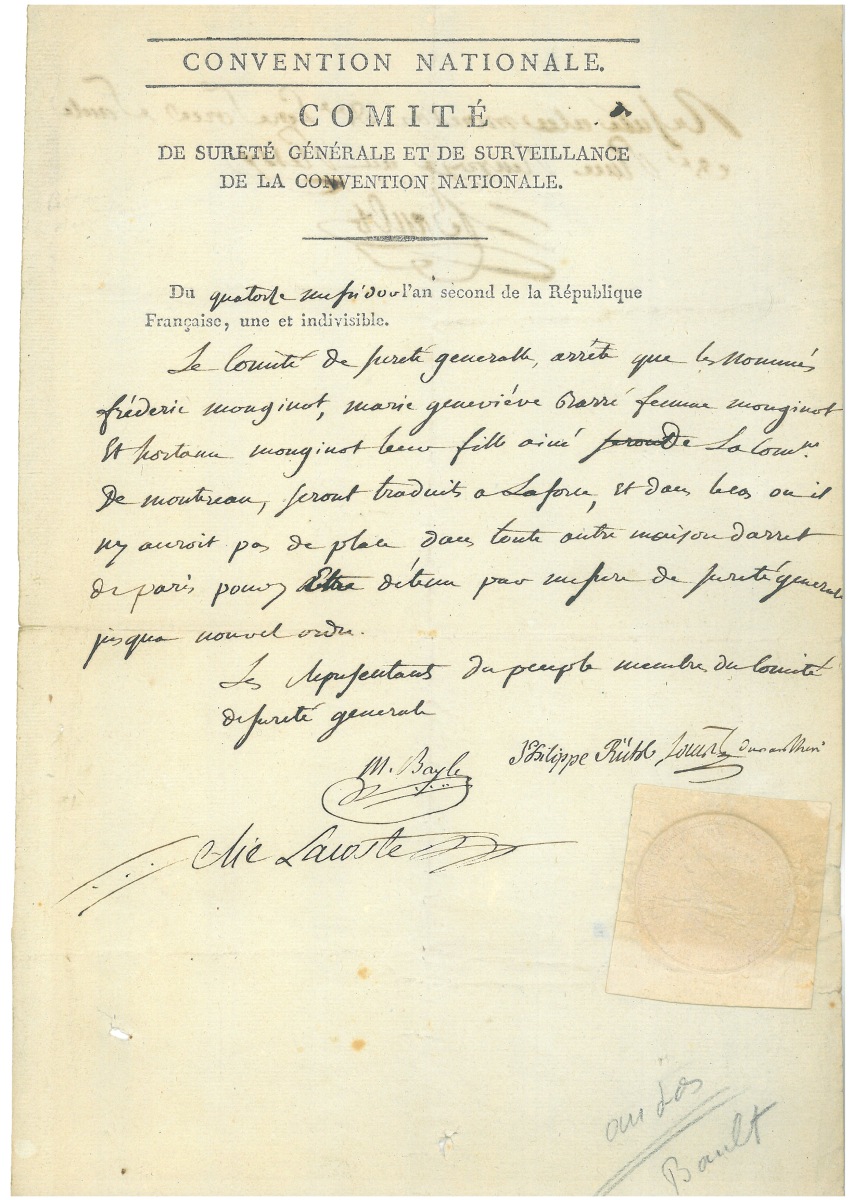 CONVENTION NATIONALE.
COMITÉ
DE SURETÉ GÉNÉRALE ET DE SURVEILLANCE
DE LA CONVENTION NATIONALE.
Du quatorze messidor l'an second de la République
Française, une et indivisible.
Le Comité de sureté generalle, arrête que les nommés
fréderic monginot, marie geneviéve Barré femme monginot
Et hortanse monginot leur fille ainé seront De La Com.ne
De montreau, seront traduits a Laforce, et dans le cas ou il
ny auroit pas de place dans toute autre maison darret
de paris pour y Etre détenu par mesure de sureté generale
jusqua nouvel ordre.
Les Representants du peuple membres du Comité
de sureté generale
M. Bayle Philippe Rühl
Elie Lacoste
au dos
Bault